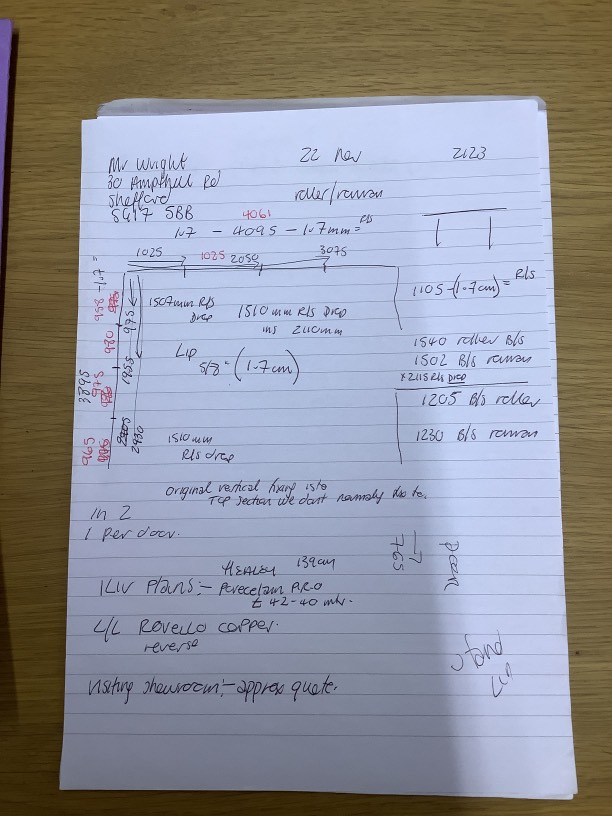 Mr Wright 22 Nov 2123
30 Ampthill Rd
Shefford roller/roman
SG17 5BB 4061
1.7 - 4095 - 1.7mm = R/s
1025 1025 2050 3075
1507mm R/s Drop
1510 mm R/s Drop
ins 2110mm
1105 - (1.7cm) = R/s
Lip 5/8" = (1.7cm)
1540 roller B/s
1502 B/s roman
x 2115 R/s Drop
1205 B/s roller
1230 B/s roman
1510mm
R/s drop
958 - 1.7 =
980
975
965
3895
975
1955
2930
original vertical fixing is to
Top section we dont normally do to.
in 2
1 per door.
HEALEY 139cm
1Liv Plans:- Porcelain P.R.O
£42-40 mtr.
L/L Rovello copper.
reverse
visiting showroom:- approx quote.
765